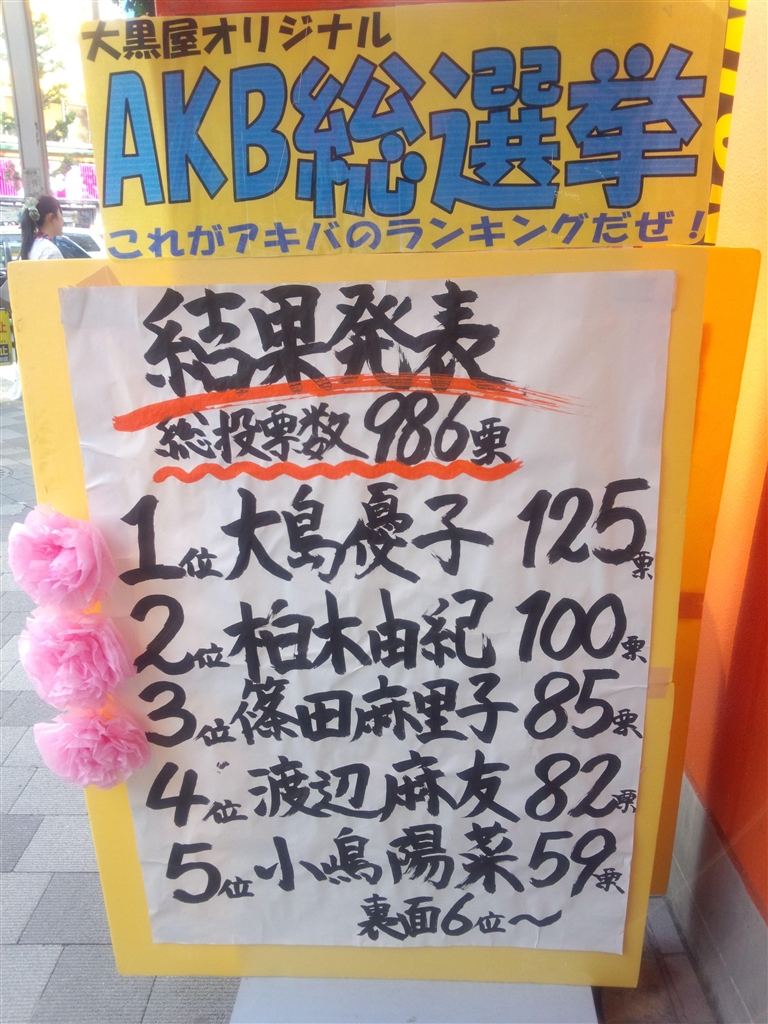 大黒屋オリジナル
AKB総選挙
これがアキバのランキングだぜ!
結果発表
総投票数 986票
1位 大島優子 125票
2位 柏木由紀 100票
3位 篠田麻里子 85票
4位 渡辺麻友 82票
5位 小嶋陽菜 59票
裏面6位〜